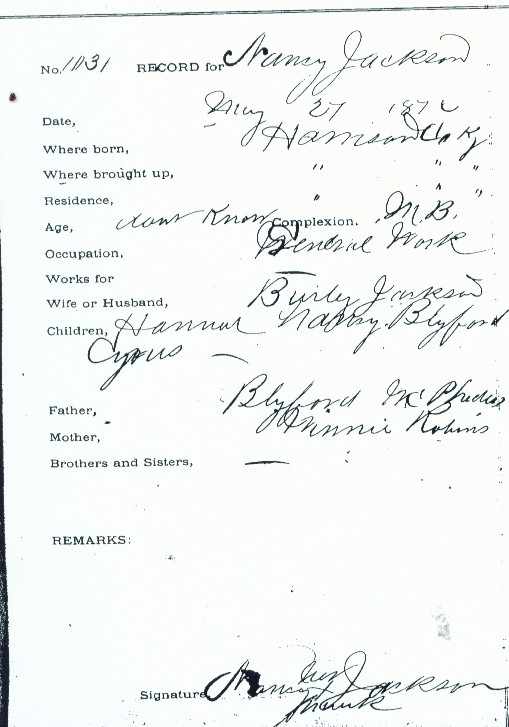 No. 1131 RECORD for Nancy Jackson
Date, May 27 187
Where born, Harrison Co Ky
Where brought up, " " "
Residence, " "
Age, dont Know Complexion. M B.
Occupation, General Work
Works for —
Wife or Husband, Burley Jackson
Children, Hannah Nancy Blyford
Cyrus —
Father, Blyford
Mother, Minnie Robins
Brothers and Sisters, —
REMARKS:
Signature Nancy her Jackson
mark